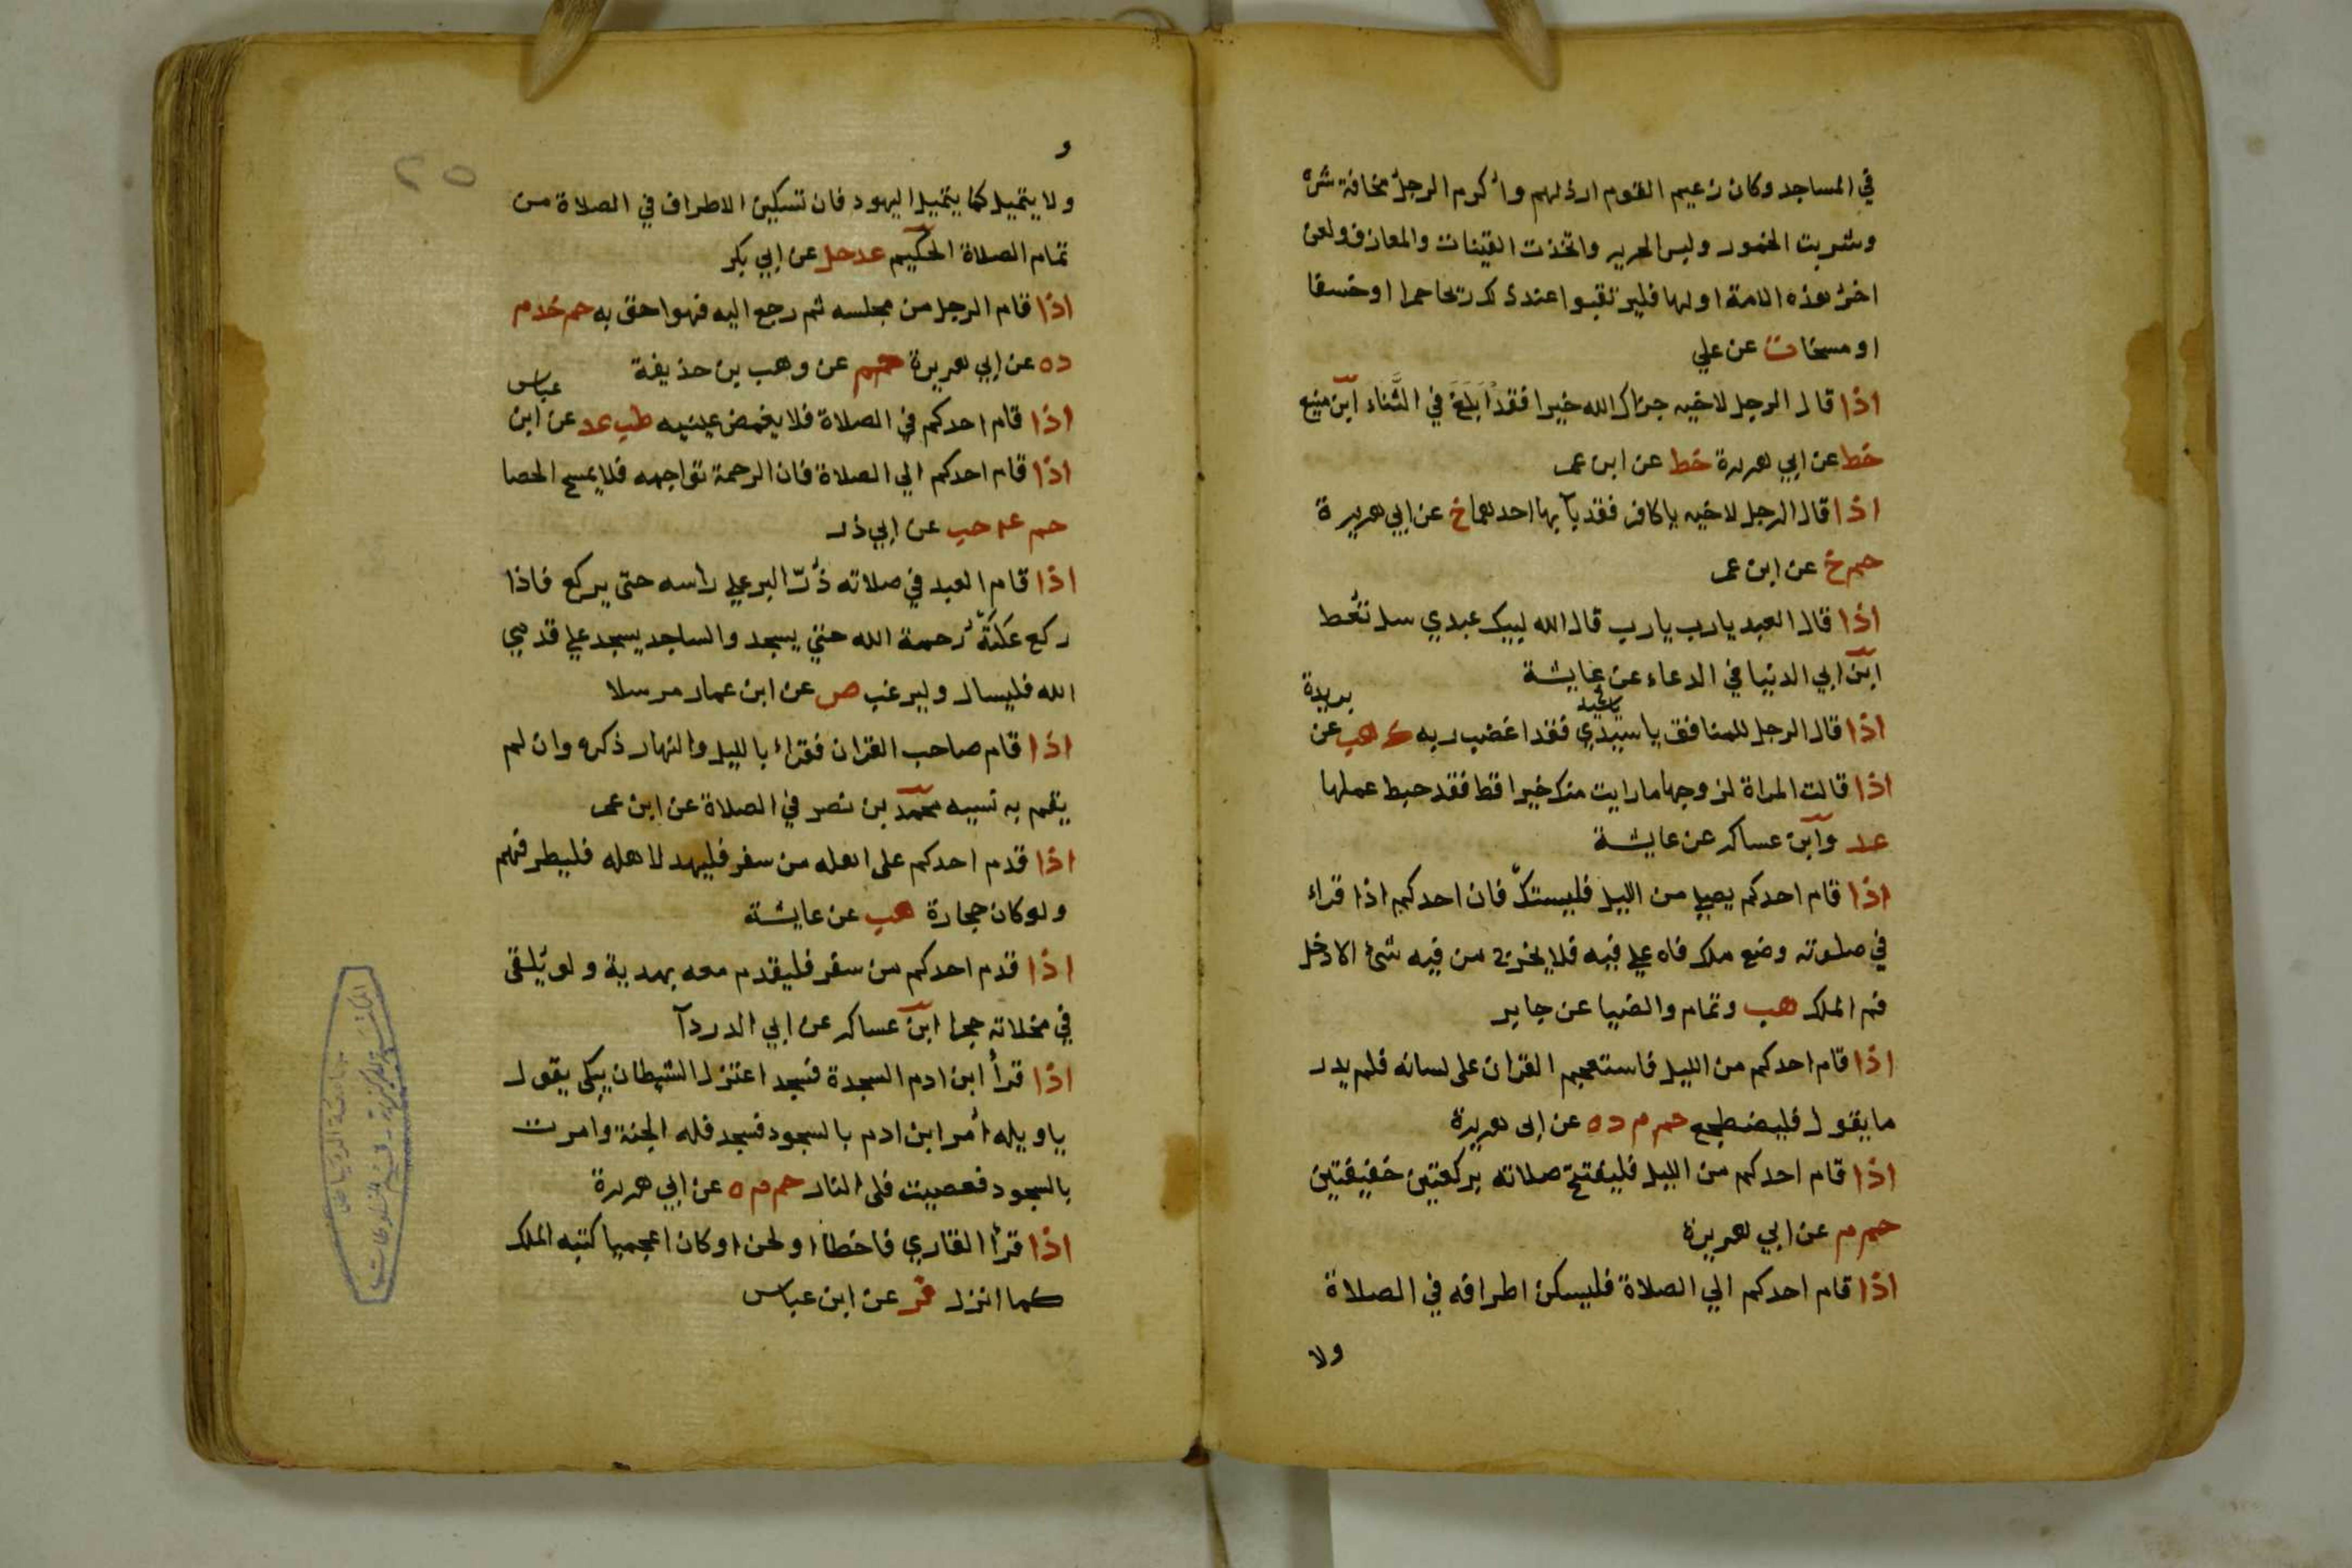 في المساجد وكان زعيم القوم ارذلهم واكرم الرجل مخافة شره
وشربت الخمور ولبس الحرير واتخذت القينات والمعازف ولعن
اخر هذه الامة اولها فليرتقبوا عند ذلك ريحا حمرا او خسفا
او مسخا ت عن علي
اذا قال الرجل لاخيه جزاك الله خيرا فقد ابلغ في الثناء ابن منيع
خط عن ابي هريرة خط عن ابن عمر
اذا قال الرجل لاخيه يا كافر فقد باء بها احدهما خ عن ابي هريرة
حم خ عن ابن عمر
اذا قال العبد يا رب يا رب قال الله لبيك عبدي سل تعط
ابن ابي الدنيا في الدعاء عن عايشة
اذا قال الرجل للمنافق يا سيدي فقد اغضب ربه ك هب عن بريدة
اذا قالت المراة لزوجها ما رايت منك خيرا قط فقد حبط عملها
عد وابن عساكر عن عايشة
اذا قام احدكم يصلي من الليل فليستك فان احدكم اذا قراء
في صلوته وضع ملك فاه علي فيه فلا يخرج من فيه شئ الا دخل
فم الملك هب وتمام والضيا عن جابر
اذا قام احدكم من الليل فاستعجم القران على لسانه فلم يدر
ما يقول فليضطجع حم م د ه عن ابى هريرة
اذا قام احدكم من الليل فليفتتح صلاته بركعتين خفيفتين
حم م عن ابي هريرة
اذا قام احدكم الي الصلاة فليسكن اطرافه في الصلاة
ولا
و
ولا يتميل كما يتميل اليهود فان تسكين الاطراف في الصلاة من
تمام الصلاة الحكيم عد حل عن ابي بكر
اذا قام الرجل من مجلسه ثم رجع اليه فهو احق به حم خد م
د ه عن ابي هريرة حم عن وهب بن حذيفة
اذا قام احدكم في الصلاة فلا يغمض عينيه طب عد عن ابن عباس
اذا قام احدكم الي الصلاة فان الرحمة تواجهه فلا يمسح الحصا
حم عه حب عن ابي ذر
اذا قام العبد في صلاته ذر البر علي راسه حتى يركع فاذا
ركع علته رحمة الله حتي يسجد والساجد يسجد علي قدمي
الله فليسال وليرغب ص عن ابن عمار مرسلا
اذا قام صاحب القران فقراء بالليل والنهار ذكره وان لم
يقم به نسيه محمد بن نصر في الصلاة عن ابن عمر
اذا قدم احدكم على اهله من سفر فليهد لاهله فليطرفهم
ولو كان حجارة هب عن عايشة
اذا قدم احدكم من سفر فليقدم معه بهدية ولو يلقى
في مخلاته حجرا ابن عساكر عن ابي الدردآ
اذا قرأ ابن ادم السجدة فسجد اعتزل الشيطان يبكي يقول
يا ويله أمر ابن ادم بالسجود فسجد فله الجنة وامرت
بالسجود فعصيت فلى النار حم م ه عن ابي هريرة
اذا قرأ القاري فاخطأ او لحن او كان اعجميا كتبه الملك
كما انزل فر عن ابن عباس
٢٥
جامعة الرياض